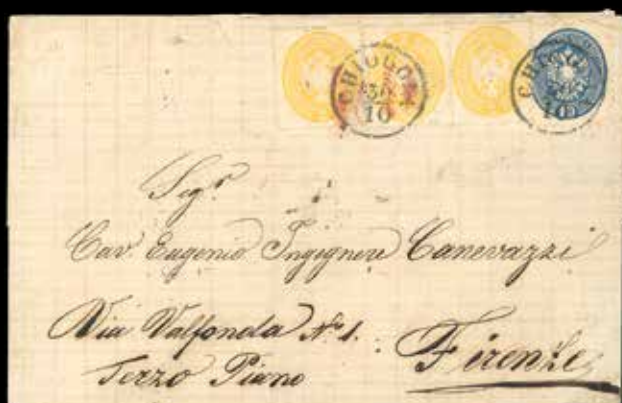 CHIOGGIA
30
10
CHIOGGIA
30
10
Sigr
Cav. Eugenio Ingegnere Canevazzi
Via Valfonda No 1.
Terzo Piano
Firenze